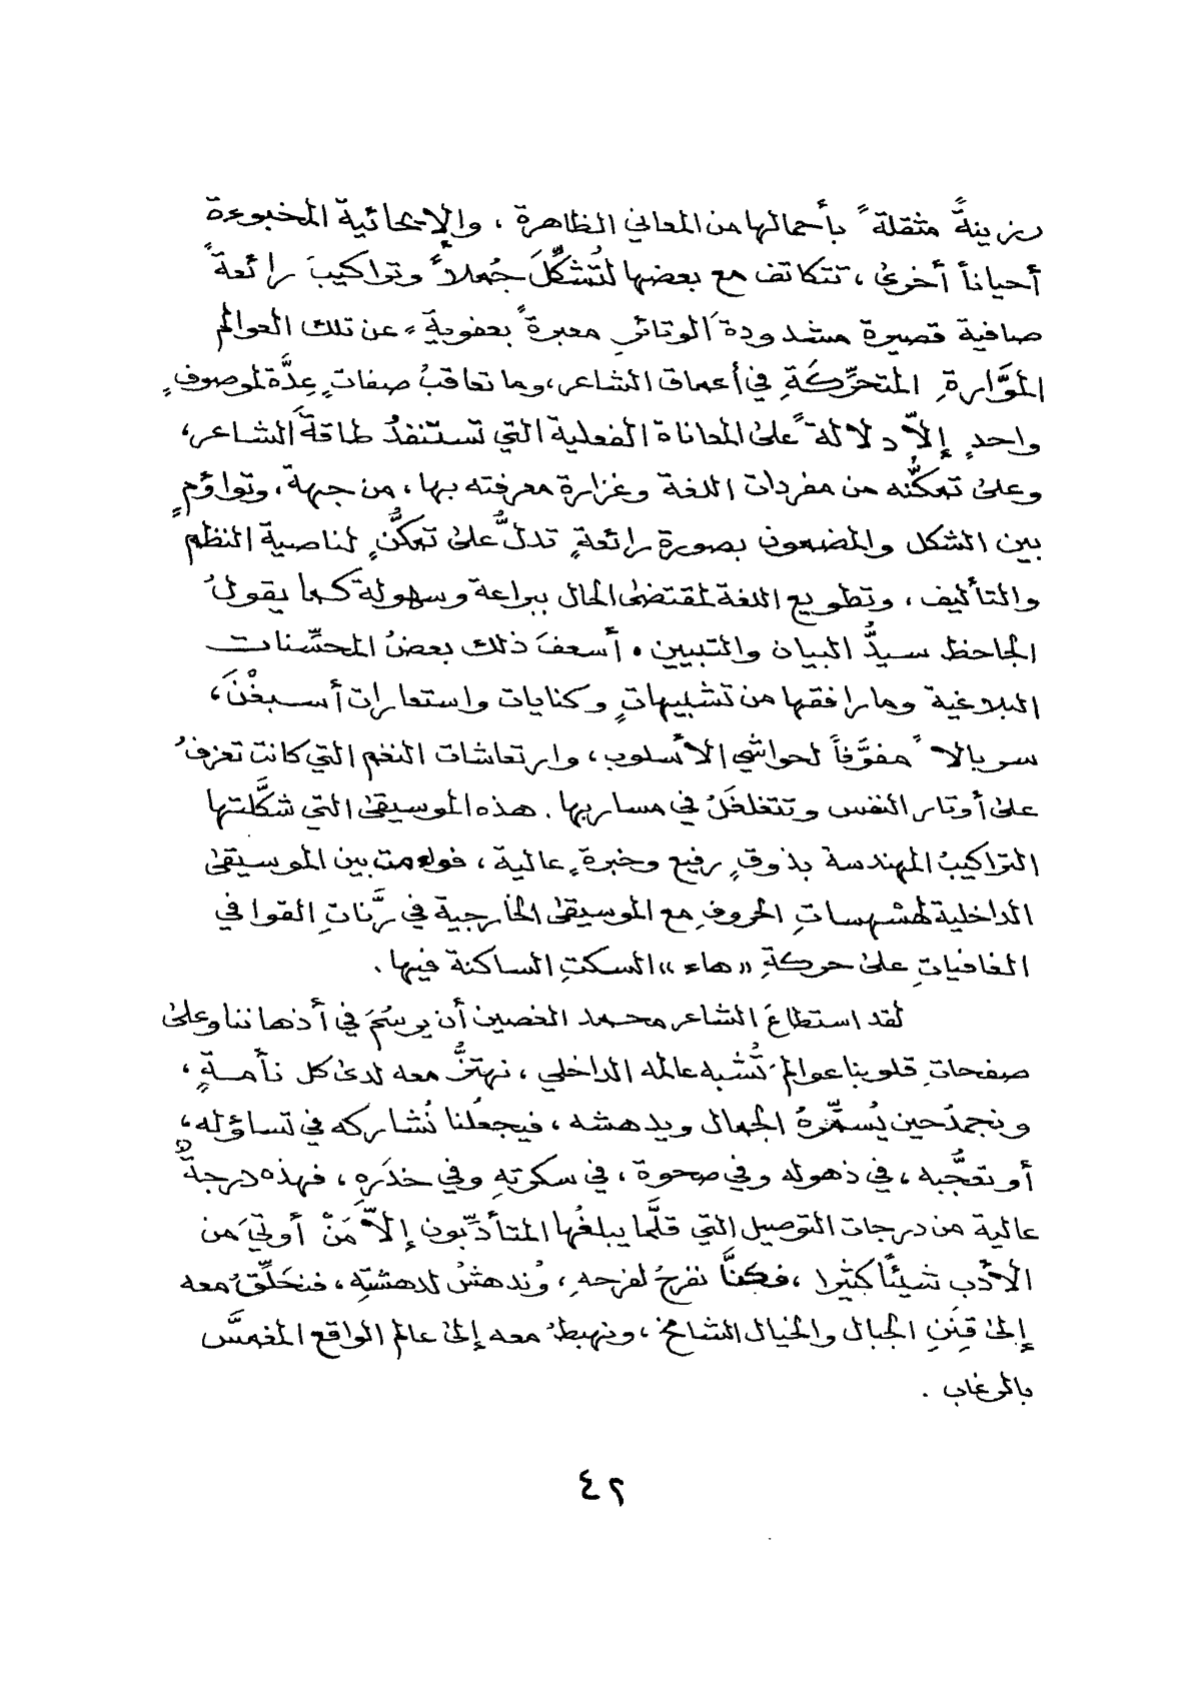 رزينةً مثقلةً بأحمالها من المعاني الظاهرة ، والإيحائية المخبوءة
أحياناً أخرى ، تتكاتف مع بعضها لتُشكِّلَ جُملاً وتراكيبَ رائعةً
صافية قصيرة مشدودةَ الوتائرِ معبرةً بعفويةٍ عن تلك العوالم
الموَّارةِ المتحرِّكَةِ في أعماق الشاعر ، وما تعاقبُ صفاتٍ عِدَّة لموصوفٍ
واحدٍ إلاّ دلالةً على المعاناة الفعلية التي تستنفدُ طاقةَ الشاعر ،
وعلى تمكُّنه من مفردات اللغة وغزارة معرفته بها ، من جهة ، وتواؤمٍ
بين الشكل والمضمون بصورةٍ رائعةٍ تدلُّ على تمكُّنٍ لناصية النظم
والتأليف ، وتطويع اللغة لمقتضى الحال ببراعة وسهولة كما يقولُ
الجاحظ سيدُّ البيان والتبيين . أسعفَ ذلك بعضُ المحسِّنات
البلاغية وما رافقها من تشبيهاتٍ وكنايات واستعارات أسبغْنَ ،
سربالاً مفوَّفاً لحواشي الأسلوب ، وارتعاشات النغم التي كانت تعزفُ
على أوتار النفس وتتغلغَلُ في مساربها . هذه الموسيقى التي شكَّلتها
التراكيبُ المهندسة بذوقٍ رفيع وخبرةٍ عالية ، فواءمت بين الموسيقى
الداخلية لهسْهساتِ الحروفِ مع الموسيقى الخارجية في رنَّاتِ القوافي
الغافياتِ على حركةِ «هاء» السكتِ الساكنة فيها .
لقد استطاعَ الشاعر محمد الغصين أن يرسُمَ في أذهاننا وعلى
صفحاتِ قلوبنا عوالمَ تُشبه عالمه الداخلي ، نهتزُّ معه لدى كل نأمةٍ ،
ونجمدُ حين يُسمِّرهُ الجمال ويدهشه ، فيجعلُنا نُشاركه في تساؤله ،
أو تعجُّبه ، في ذهوله وفي صحوة ، في سكرتهِ وفي خدَرِه ، فهذه درجةٌ
عالية من درجات التوصيل التي قلَّما يبلغُها المتأدِّبون إلاّ مَنْ أوتيَ من
الأدبِ شيئاً كثيرا ، فكنَّا نفرحُ لفرحهِ ، وندهشُ لدهشتِه ، فنحَلِّقُ معه
إلى قِننِ الجبال والخيال الشامخ ، ونهبطُ معه إلى عالم الواقع المغمَّس
بالرغاب .
٤٢